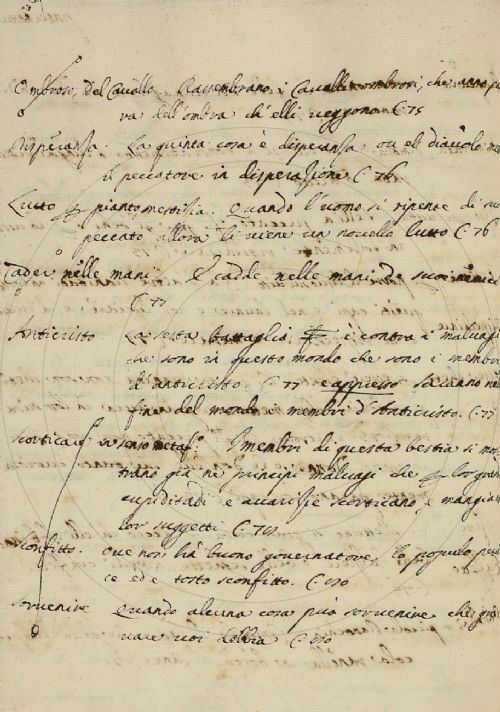 Ombroso, del Cavallo Rassembrano i Cavalli ombrosi, che anno pa
va dell'ombra ch'elli veggono C. 75
Disperansa. La quinta cosa è disperansa ou el diavolo me
il peccatore in disperasione C. 76
Lutto pianto mestisia. Quando l'uomo si ripente di suo
peccato allora li viene un novello lutto C. 76
Cader nelle mani. E cadde nelle mani de suoi nimici
C. 77
Anticristo. La sesta battaglia è contra i malvagi
che sono in questo mondo che sono i membri
d'anticristo. C. 77 e appresso saranno nel
fine del mondo i membri d'Anticristo. C. 77
scorticare in senso metaf.o I membri di questa bestia si mos
trano già ne principi malvagi che lor gran
cupiditadi e avarisie scorticano, e mangia
lor suggetti C.
sconfitto. ove non hà buono governatore, lo popolo peris
ce ed e tosto sconfitto. C. 110
sovvenire Quando alcuna cosa può sovvenire che gio
vare voi debbia C. 110